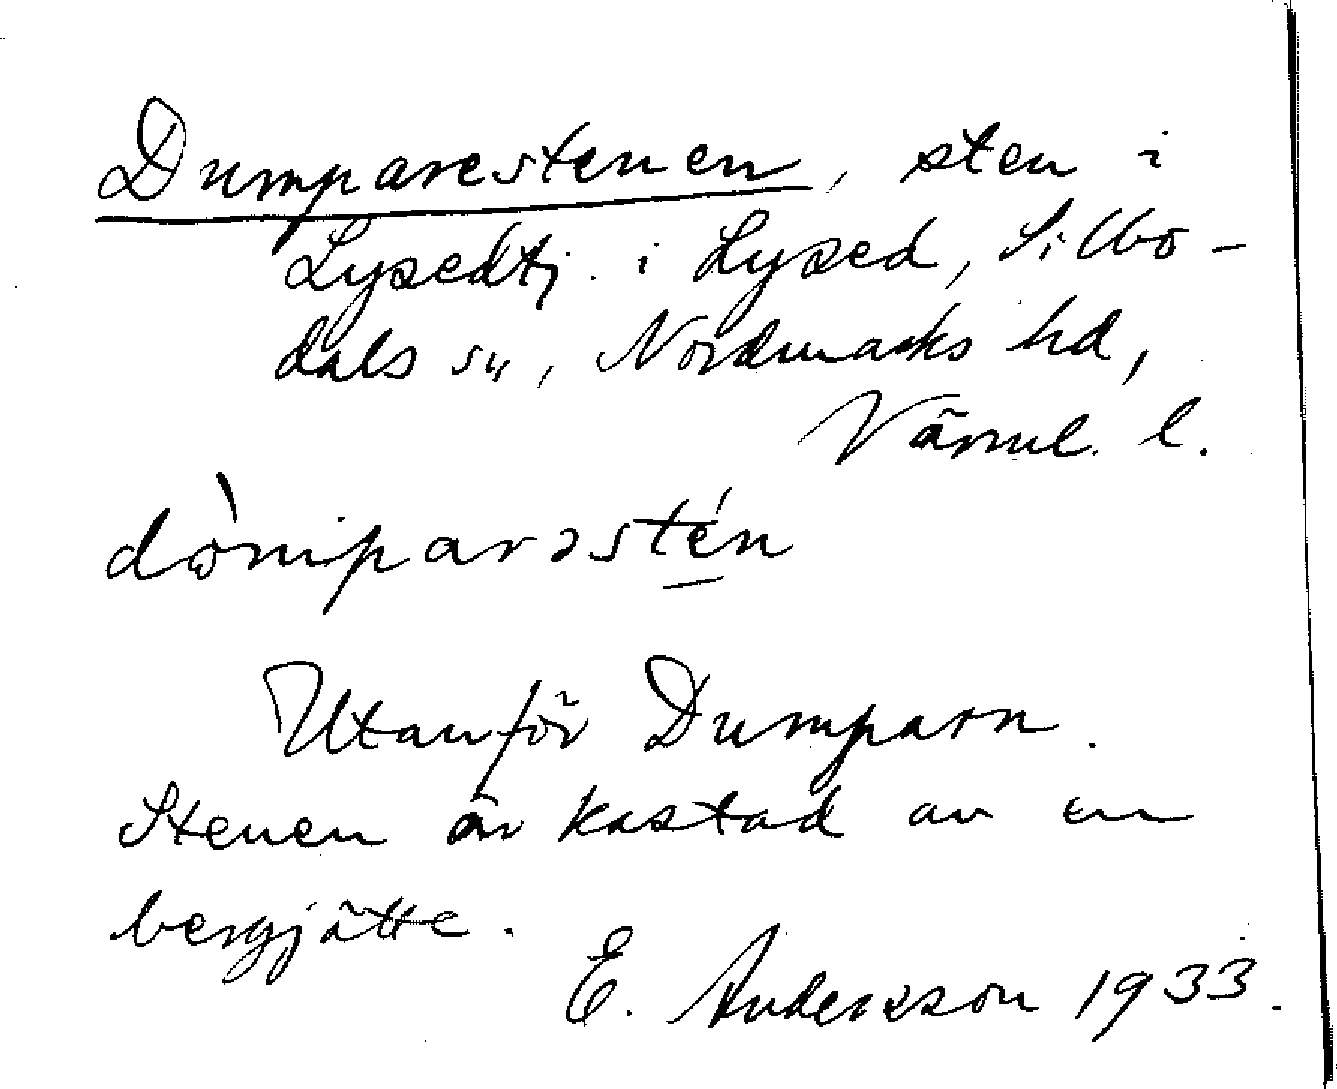 Dumparestenen, sten i
Lysedtj. i Lysed, Sillbo-
dals sn, Nordmarks hd,
Värml. l.
dòmparəstén
Utanför Dumparn.
Stenen är kastad av en
bergjätte.
E. Andersson 1933.